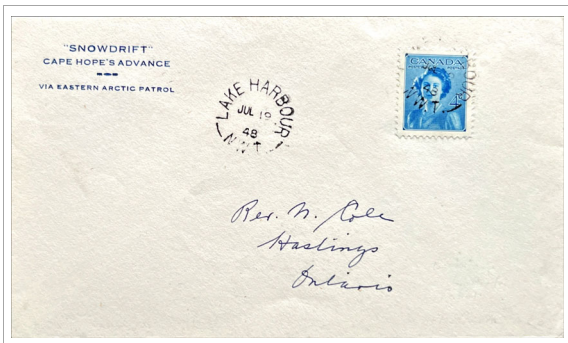 "SNOWDRIFT"
CAPE HOPE'S ADVANCE
VIA EASTERN ARCTIC PATROL
LAKE HARBOUR
JUL 19
48
N.W.T.
CANADA
48
N.W.T.
Rev. N. Cole
Hastings
Ontario